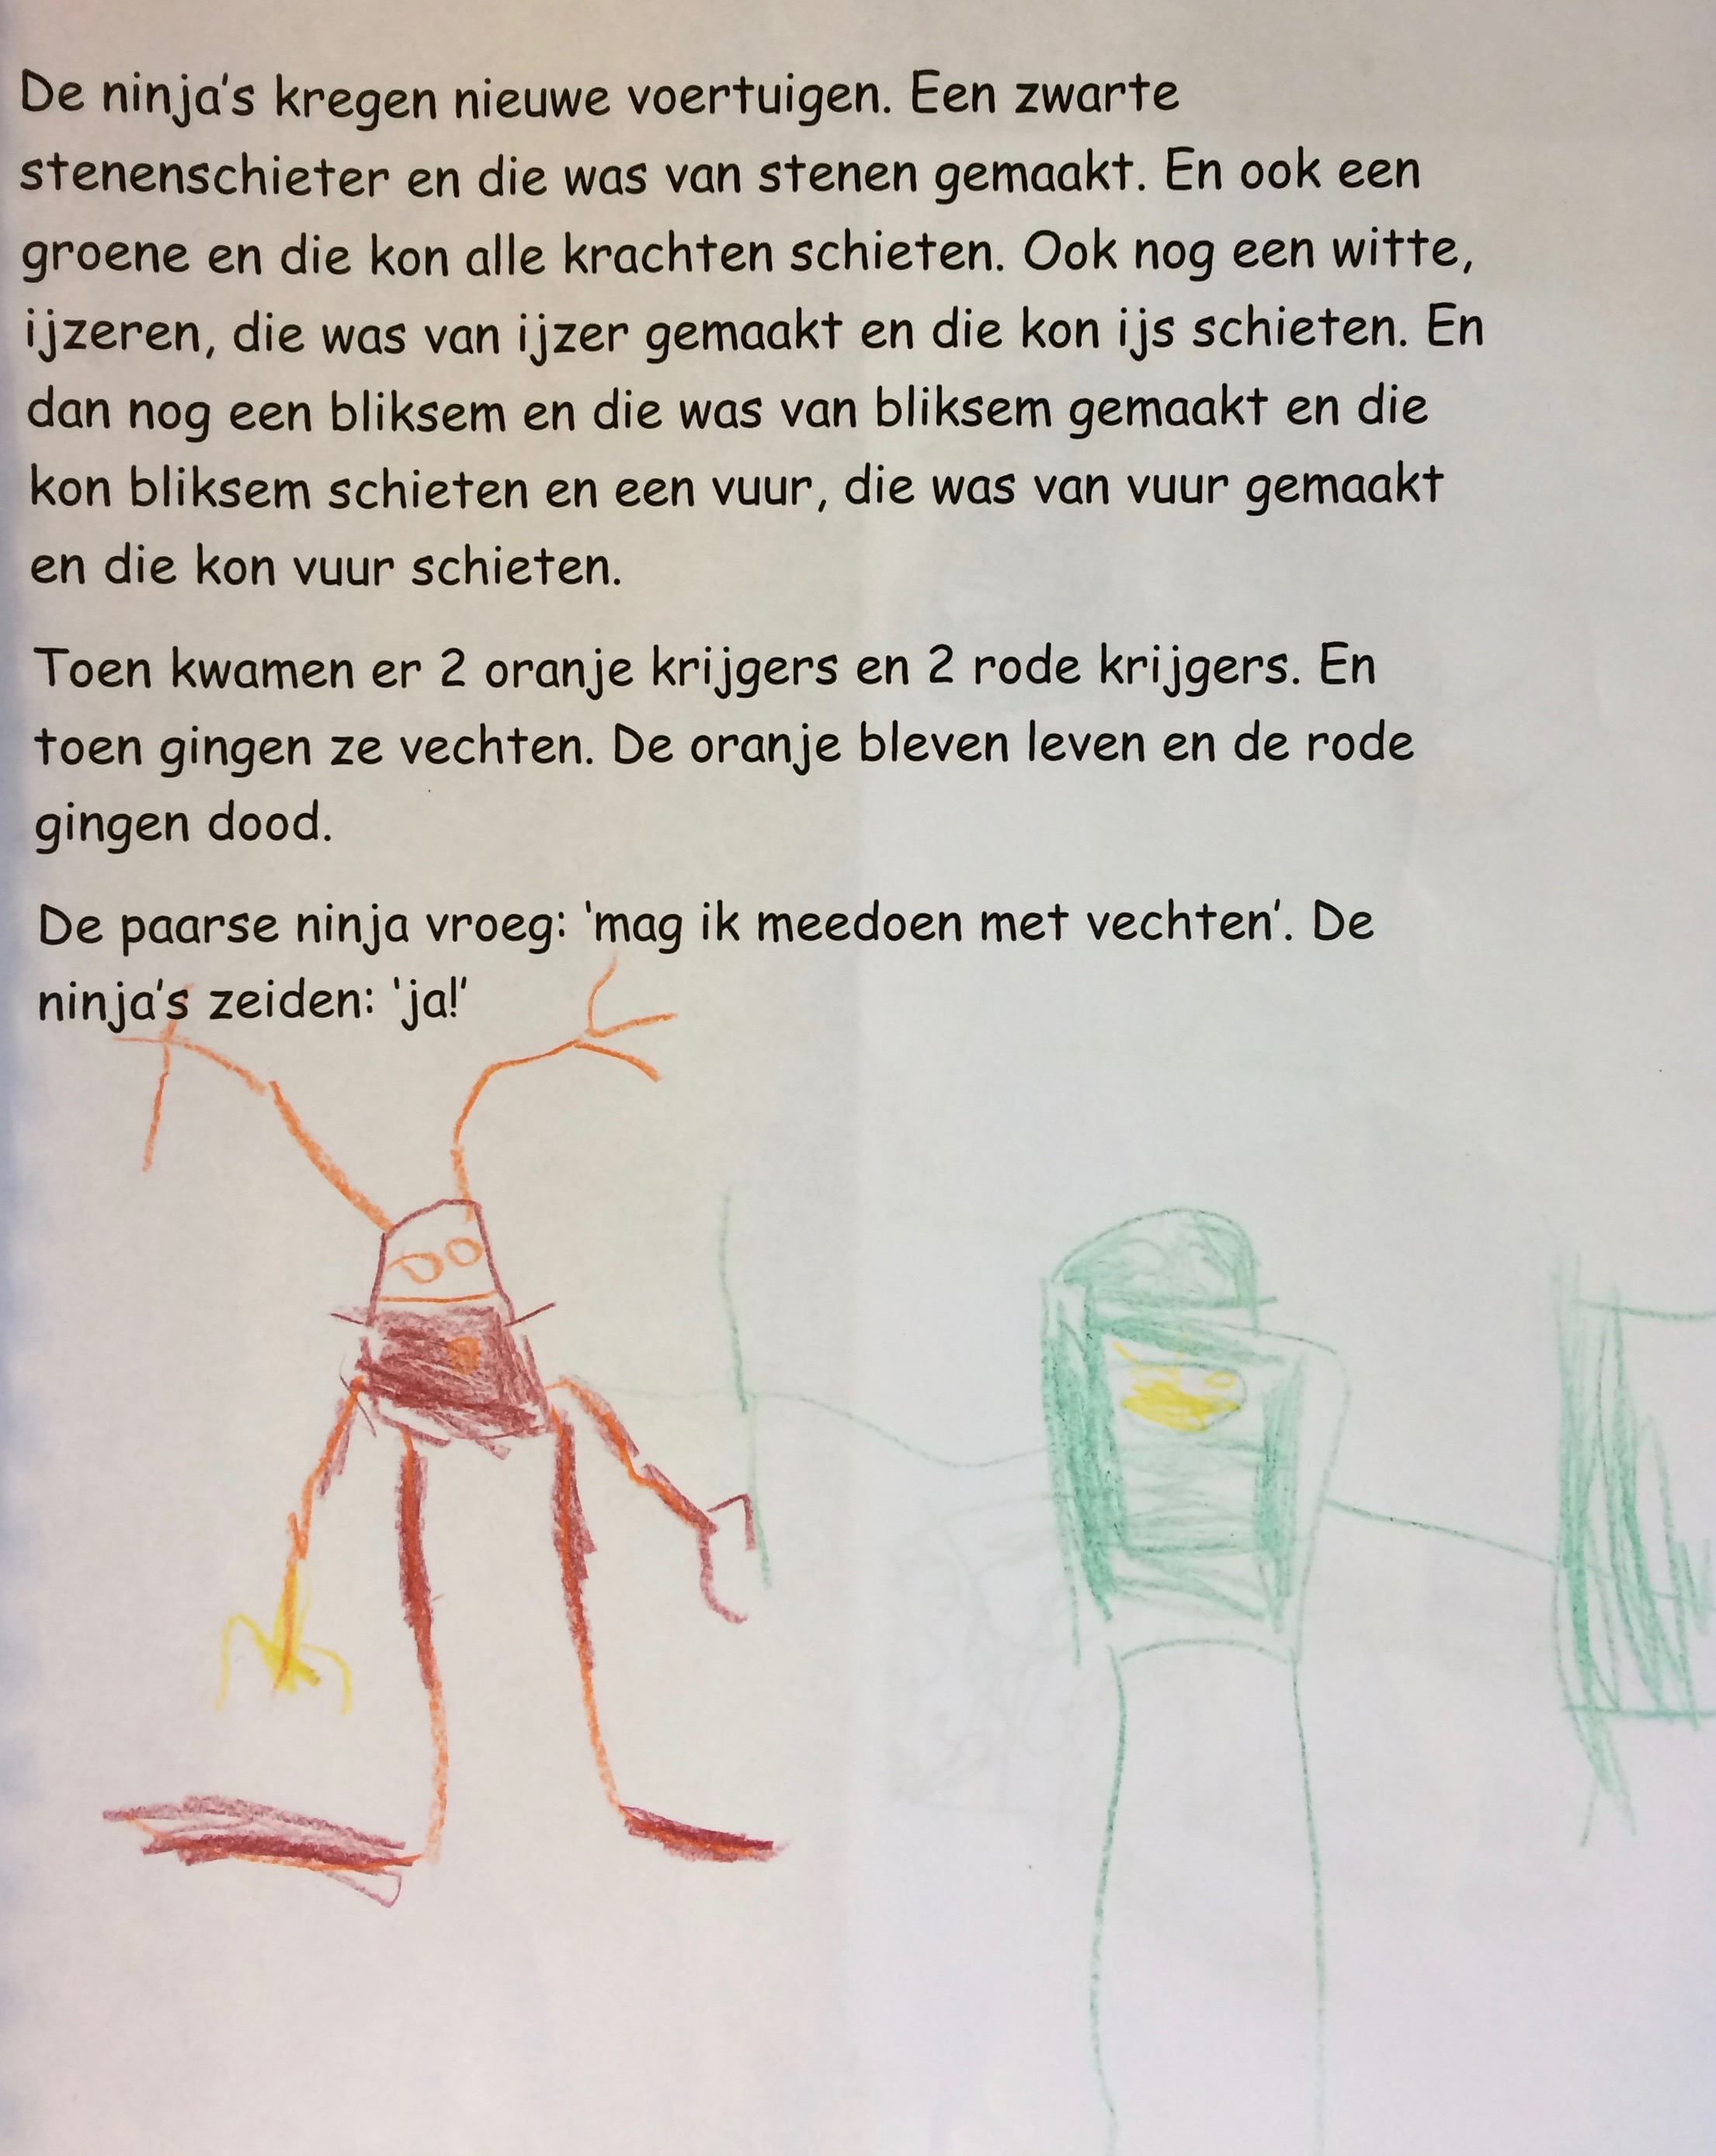 De ninja's kregen nieuwe voertuigen. Een zwarte
stenenschieter en die was van stenen gemaakt. En ook een
groene en die kon alle krachten schieten. Ook nog een witte,
ijzeren, die was van ijzer gemaakt en die kon ijs schieten. En
dan nog een bliksem en die was van bliksem gemaakt en die
kon bliksem schieten en een vuur, die was van vuur gemaakt
en die kon vuur schieten.
Toen kwamen er 2 oranje krijgers en 2 rode krijgers. En
toen gingen ze vechten. De oranje bleven leven en de rode
gingen dood.
De paarse ninja vroeg: 'mag ik meedoen met vechten'. De
ninja's zeiden: 'ja!'